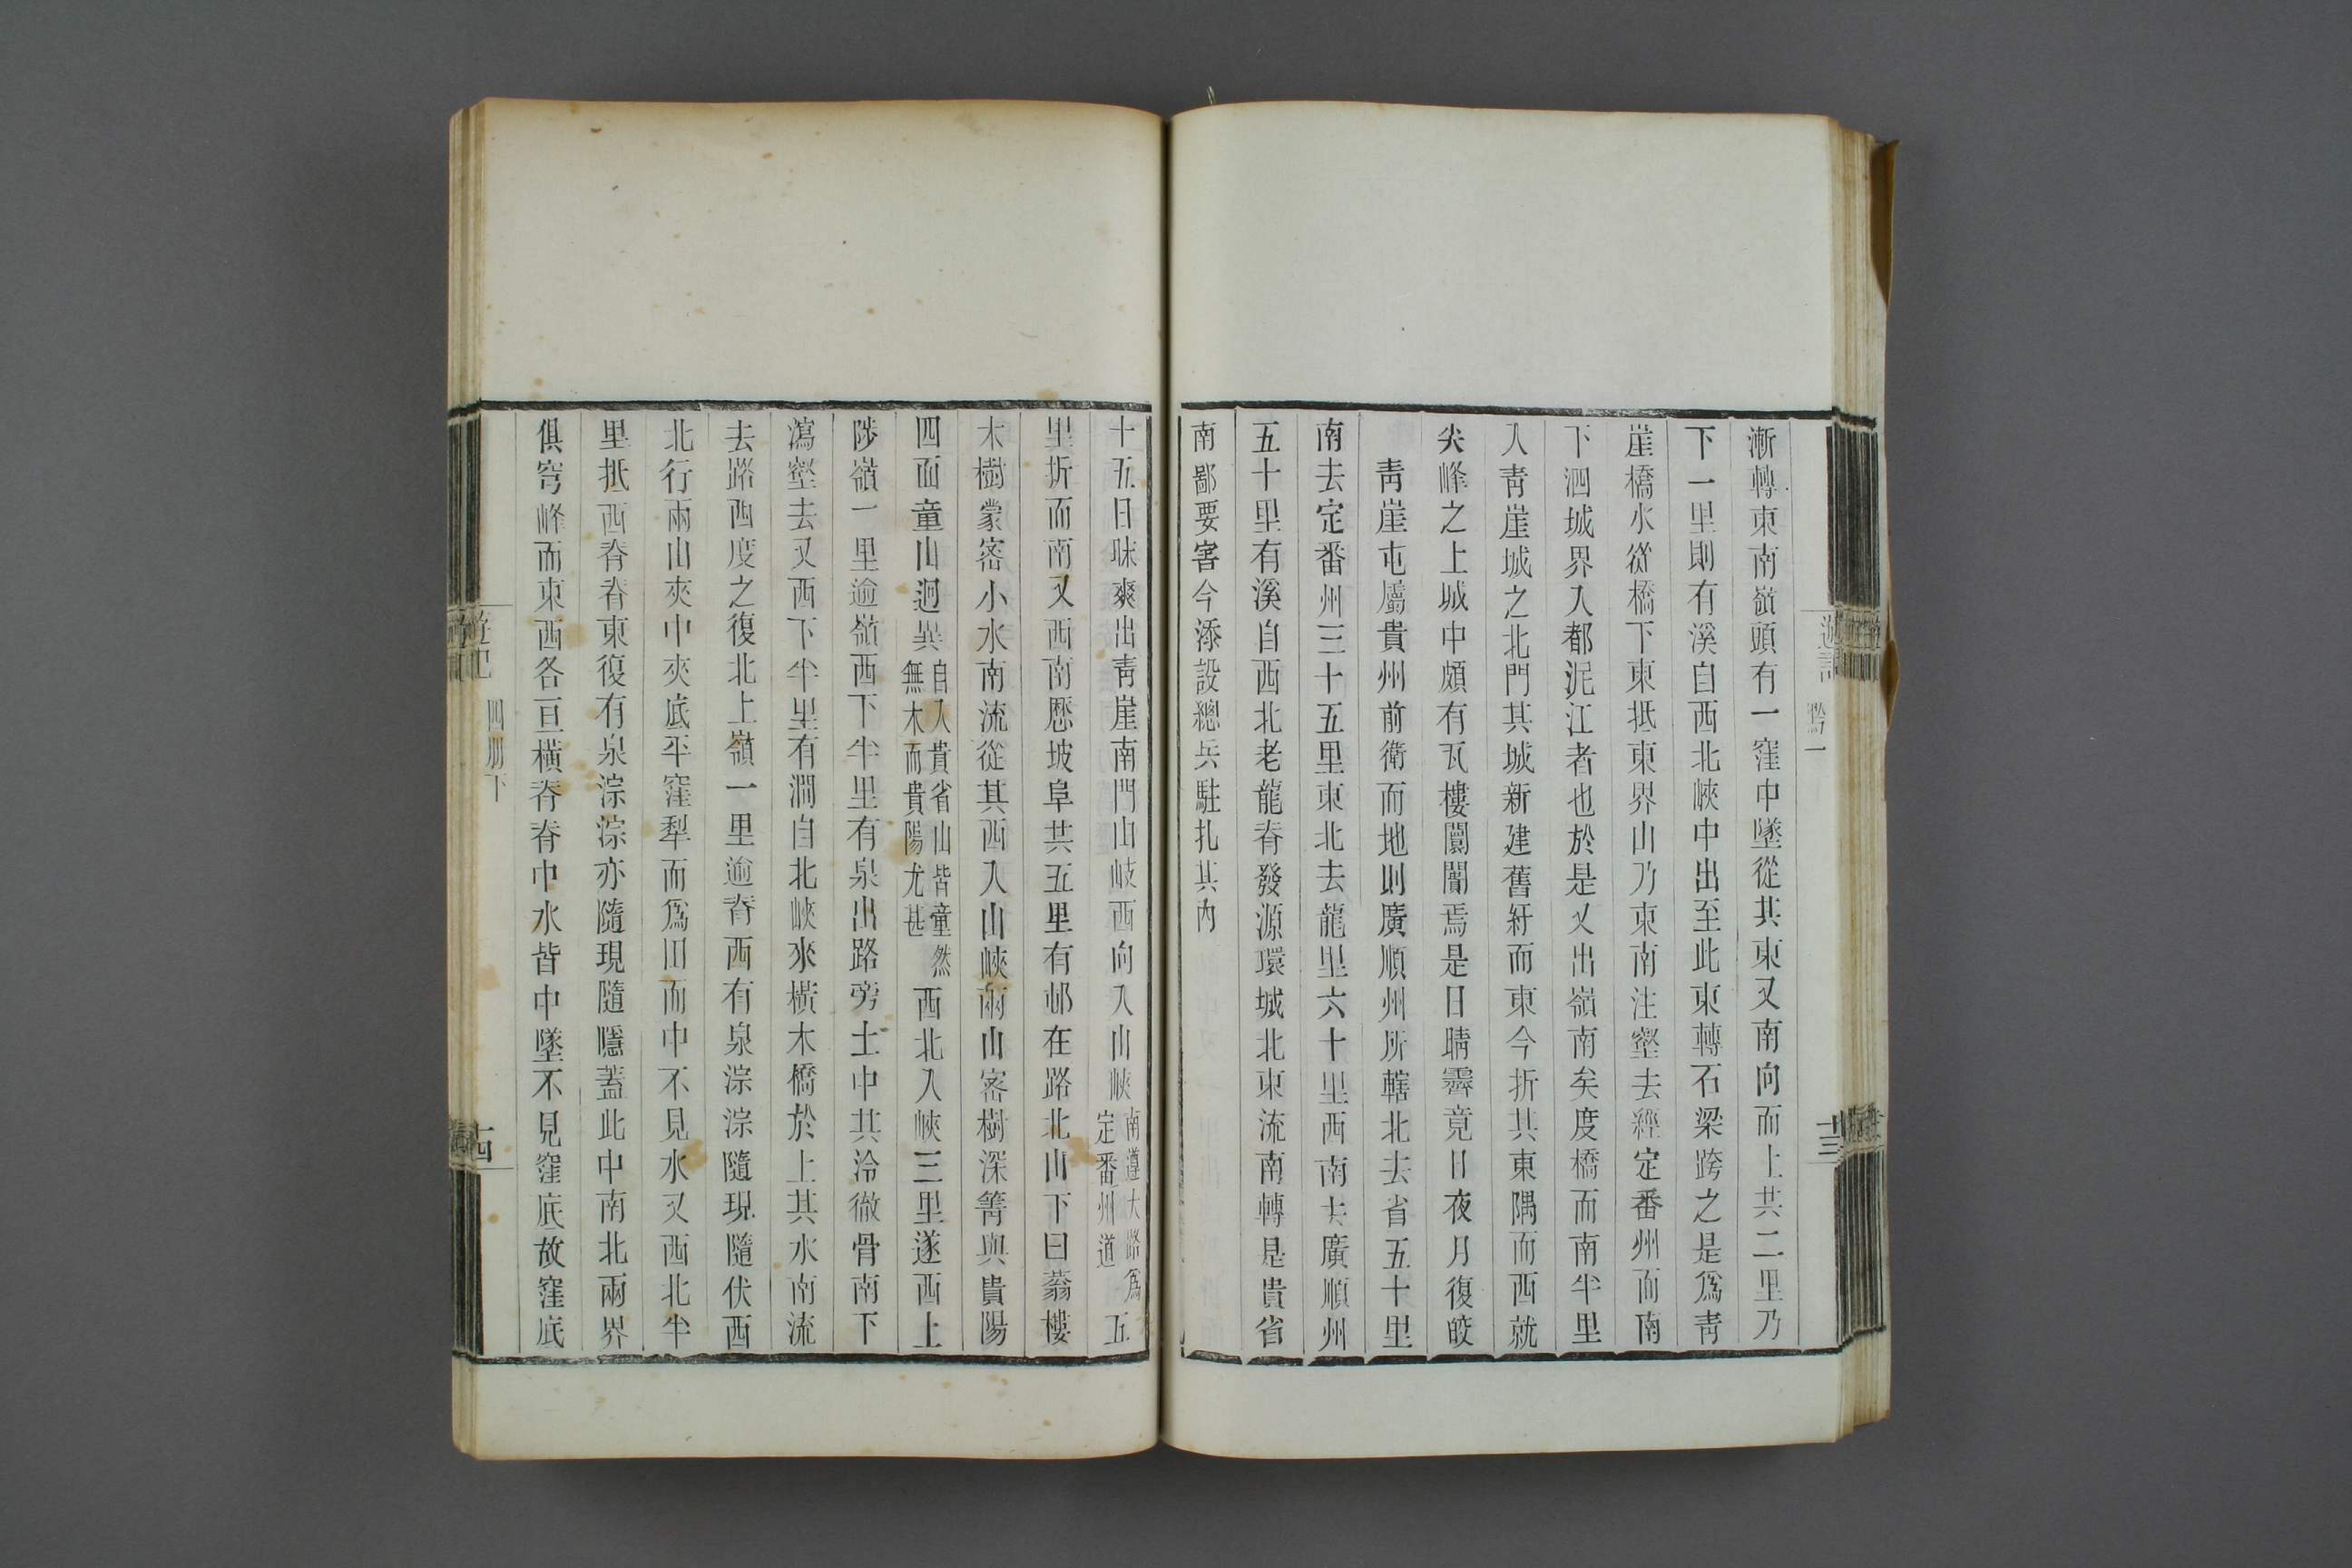 漸轉東南嶺頭有一窪中墜從其東又南向而上共二里乃
下一里則有溪自西北峽中出至此東轉石梁跨之是爲青
崖橋水從橋下東抵東界山乃東南注壑去經定番州而南
下泗城界入都泥江者也於是又出嶺南矣度橋而南半里
入青崖城之北門其城新建舊紆而東今折其東隅而西就
尖峰之上城中頗有瓦樓闤闠焉是日晴霽竟日夜月復皎
青崖屯屬貴州前衛而地則廣順州所轄北去省五十里
南去定番州三十五里東北去龍里六十里西南去廣順州
五十里有溪自西北老龍脊發源環城北東流南轉是貴省
南鄙要害今添設總兵駐扎其內
遊記
黔一
十三
十五日昧爽出青崖南門山岐西向入山峽南遵大路爲定番州道五
里折而南又西南歷坡阜共五里有邨在路北山下曰蓊樓
木樹蒙密小水南流從其西入山峽兩山密樹深箐與貴陽
四面童山迥異自入貴省山皆童然無木而貴陽尤甚西北入峽三里遂西上
陟嶺一里逾嶺西下半里有泉出路旁土中其泠徹骨南下
瀉壑去又西下半里有澗自北峽來橫木橋於上其水南流
去路西度之復北上嶺一里逾脊西有泉淙淙隨現隨伏西
北行兩山夾中夾底平窪犁而爲田而中不見水又西北半
里抵西脊脊東復有泉淙淙亦隨現隨隱蓋此中南北兩界
俱穹峰而東西各亘橫脊脊中水皆中墜不見窪底故窪底
四册下